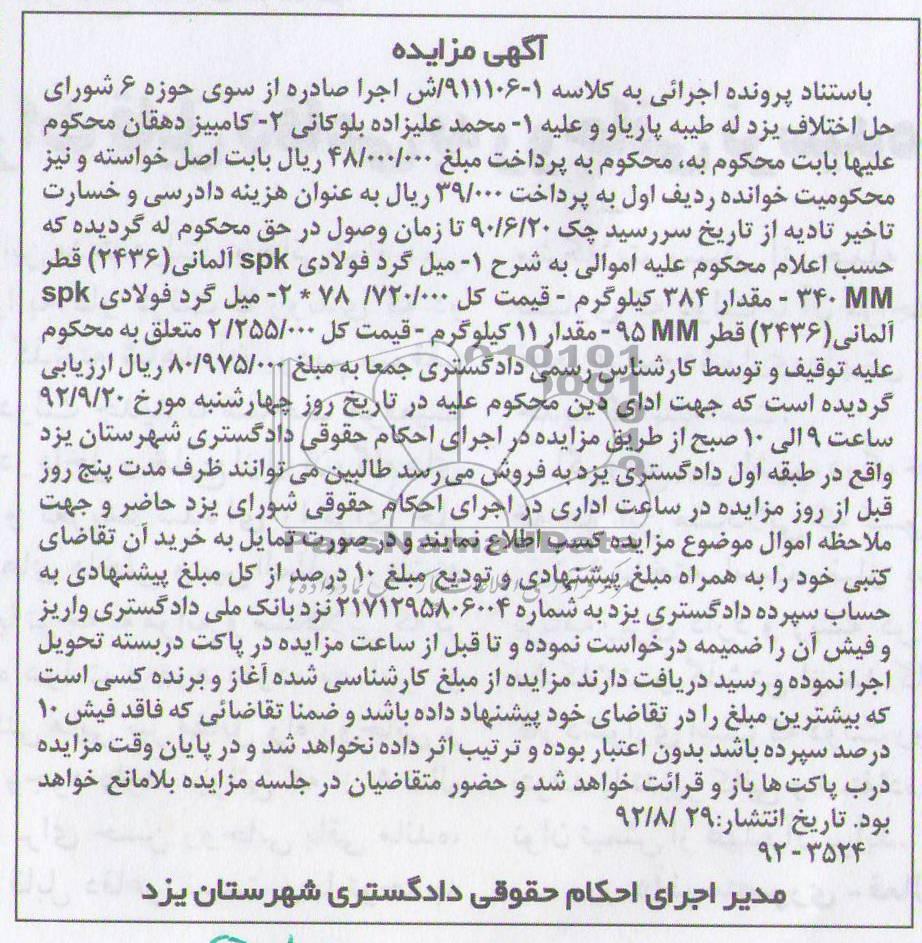 آگهی مزایده
باستناد پرونده اجرائی به کلاسه ۱-۹۱۱۱۰۶/ش اجرا صادره از سوی حوزه ۶ شورای
حل اختلاف یزد له طیبه پاریاو و علیه ۱- محمد علیزاده بلوکانی ۲- کامبیز دهقان محکوم
علیها بابت محکوم به، محکوم به پرداخت مبلغ ۴۸/۰۰۰/۰۰۰ ریال بابت اصل خواسته و نیز
محکومیت خوانده ردیف اول به پرداخت ۳۹/۰۰۰ ریال به عنوان هزینه دادرسی و خسارت
تاخیر تادیه از تاریخ سررسید چک ۹۰/۶/۲۰ تا زمان وصول در حق محکوم له گردیده که
حسب اعلام محکوم علیه اموالی به شرح ۱- میل گرد فولادی spk آلمانی(۲۴۳۶) قطر
۳۴۰ MM - مقدار ۳۸۴ کیلوگرم - قیمت کل ۷۸ /۷۲۰/۰۰۰ * ۲- میل گرد فولادی spk
آلمانی(۲۴۳۶) قطر ۹۵ MM - مقدار ۱۱ کیلوگرم - قیمت کل ۲/۲۵۵/۰۰۰ متعلق به محکوم
علیه توقیف و توسط کارشناس رسمی دادگستری جمعا به مبلغ ۸۰/۹۷۵/۰۰۰ ریال ارزیابی
گردیده است که جهت ادای دین محکوم علیه در تاریخ روز چهارشنبه مورخ ۹۲/۹/۲۰
ساعت ۹ الی ۱۰ صبح از طریق مزایده در اجرای احکام حقوقی دادگستری شهرستان یزد
واقع در طبقه اول دادگستری یزد به فروش می‌رسد طالبین می توانند ظرف مدت پنج روز
قبل از روز مزایده در ساعت اداری در اجرای احکام حقوقی شورای یزد حاضر و جهت
ملاحظه اموال موضوع مزایده کسب اطلاع نمایند و در صورت تمایل به خرید آن تقاضای
کتبی خود را به همراه مبلغ پیشنهادی و تودیع مبلغ ۱۰ درصد از کل مبلغ پیشنهادی به
حساب سپرده دادگستری یزد به شماره ۲۱۷۱۲۹۵۸۰۶۰۰۴ نزد بانک ملی دادگستری واریز
و فیش آن را ضمیمه درخواست نموده و تا قبل از ساعت مزایده در پاکت دربسته تحویل
اجرا نموده و رسید دریافت دارند مزایده از مبلغ کارشناسی شده آغاز و برنده کسی است
که بیشترین مبلغ را در تقاضای خود پیشنهاد داده باشد و ضمنا تقاضائی که فاقد فیش ۱۰
درصد سپرده باشد بدون اعتبار بوده و ترتیب اثر داده نخواهد شد و در پایان وقت مزایده
درب پاکت‌ها باز و قرائت خواهد شد و حضور متقاضیان در جلسه مزایده بلامانع خواهد
بود. تاریخ انتشار:۲۹ /۹۲/۸
۹۲ - ۳۵۲۴
مدیر اجرای احکام حقوقی دادگستری شهرستان یزد
ParsNamadData